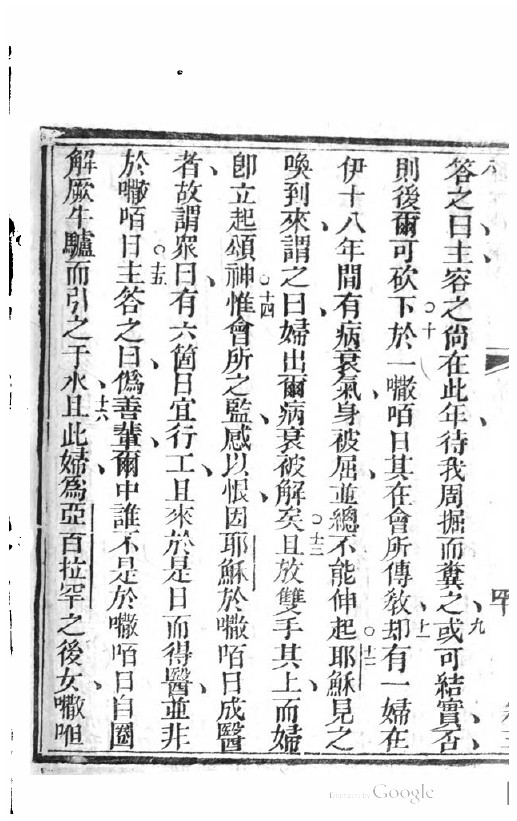 八
答之曰主容之尙在此年待我周掘而糞之或可結實否
九
則後爾可砍下於一㘔咟日其在會所傳敎却有一婦在
十
十一
伊十八年間有病衰氣身被屈並總不能伸起耶穌見之
十二
喚到來謂之曰婦出爾病衰被解矣且放雙手其上而婦
十三
卽立起頌神惟會所之監感以恨因耶穌於㘔咟日成醫
十四
者故謂眾曰有六箇日宜行工且來於是日而得醫並非
於㘔咟日主答之曰僞善輩爾中誰不是於㘔咟日自圈
十五
解厥牛驢而引之于水且此婦爲亞百拉罕之後女㘔呾
十六
Digitized by Google